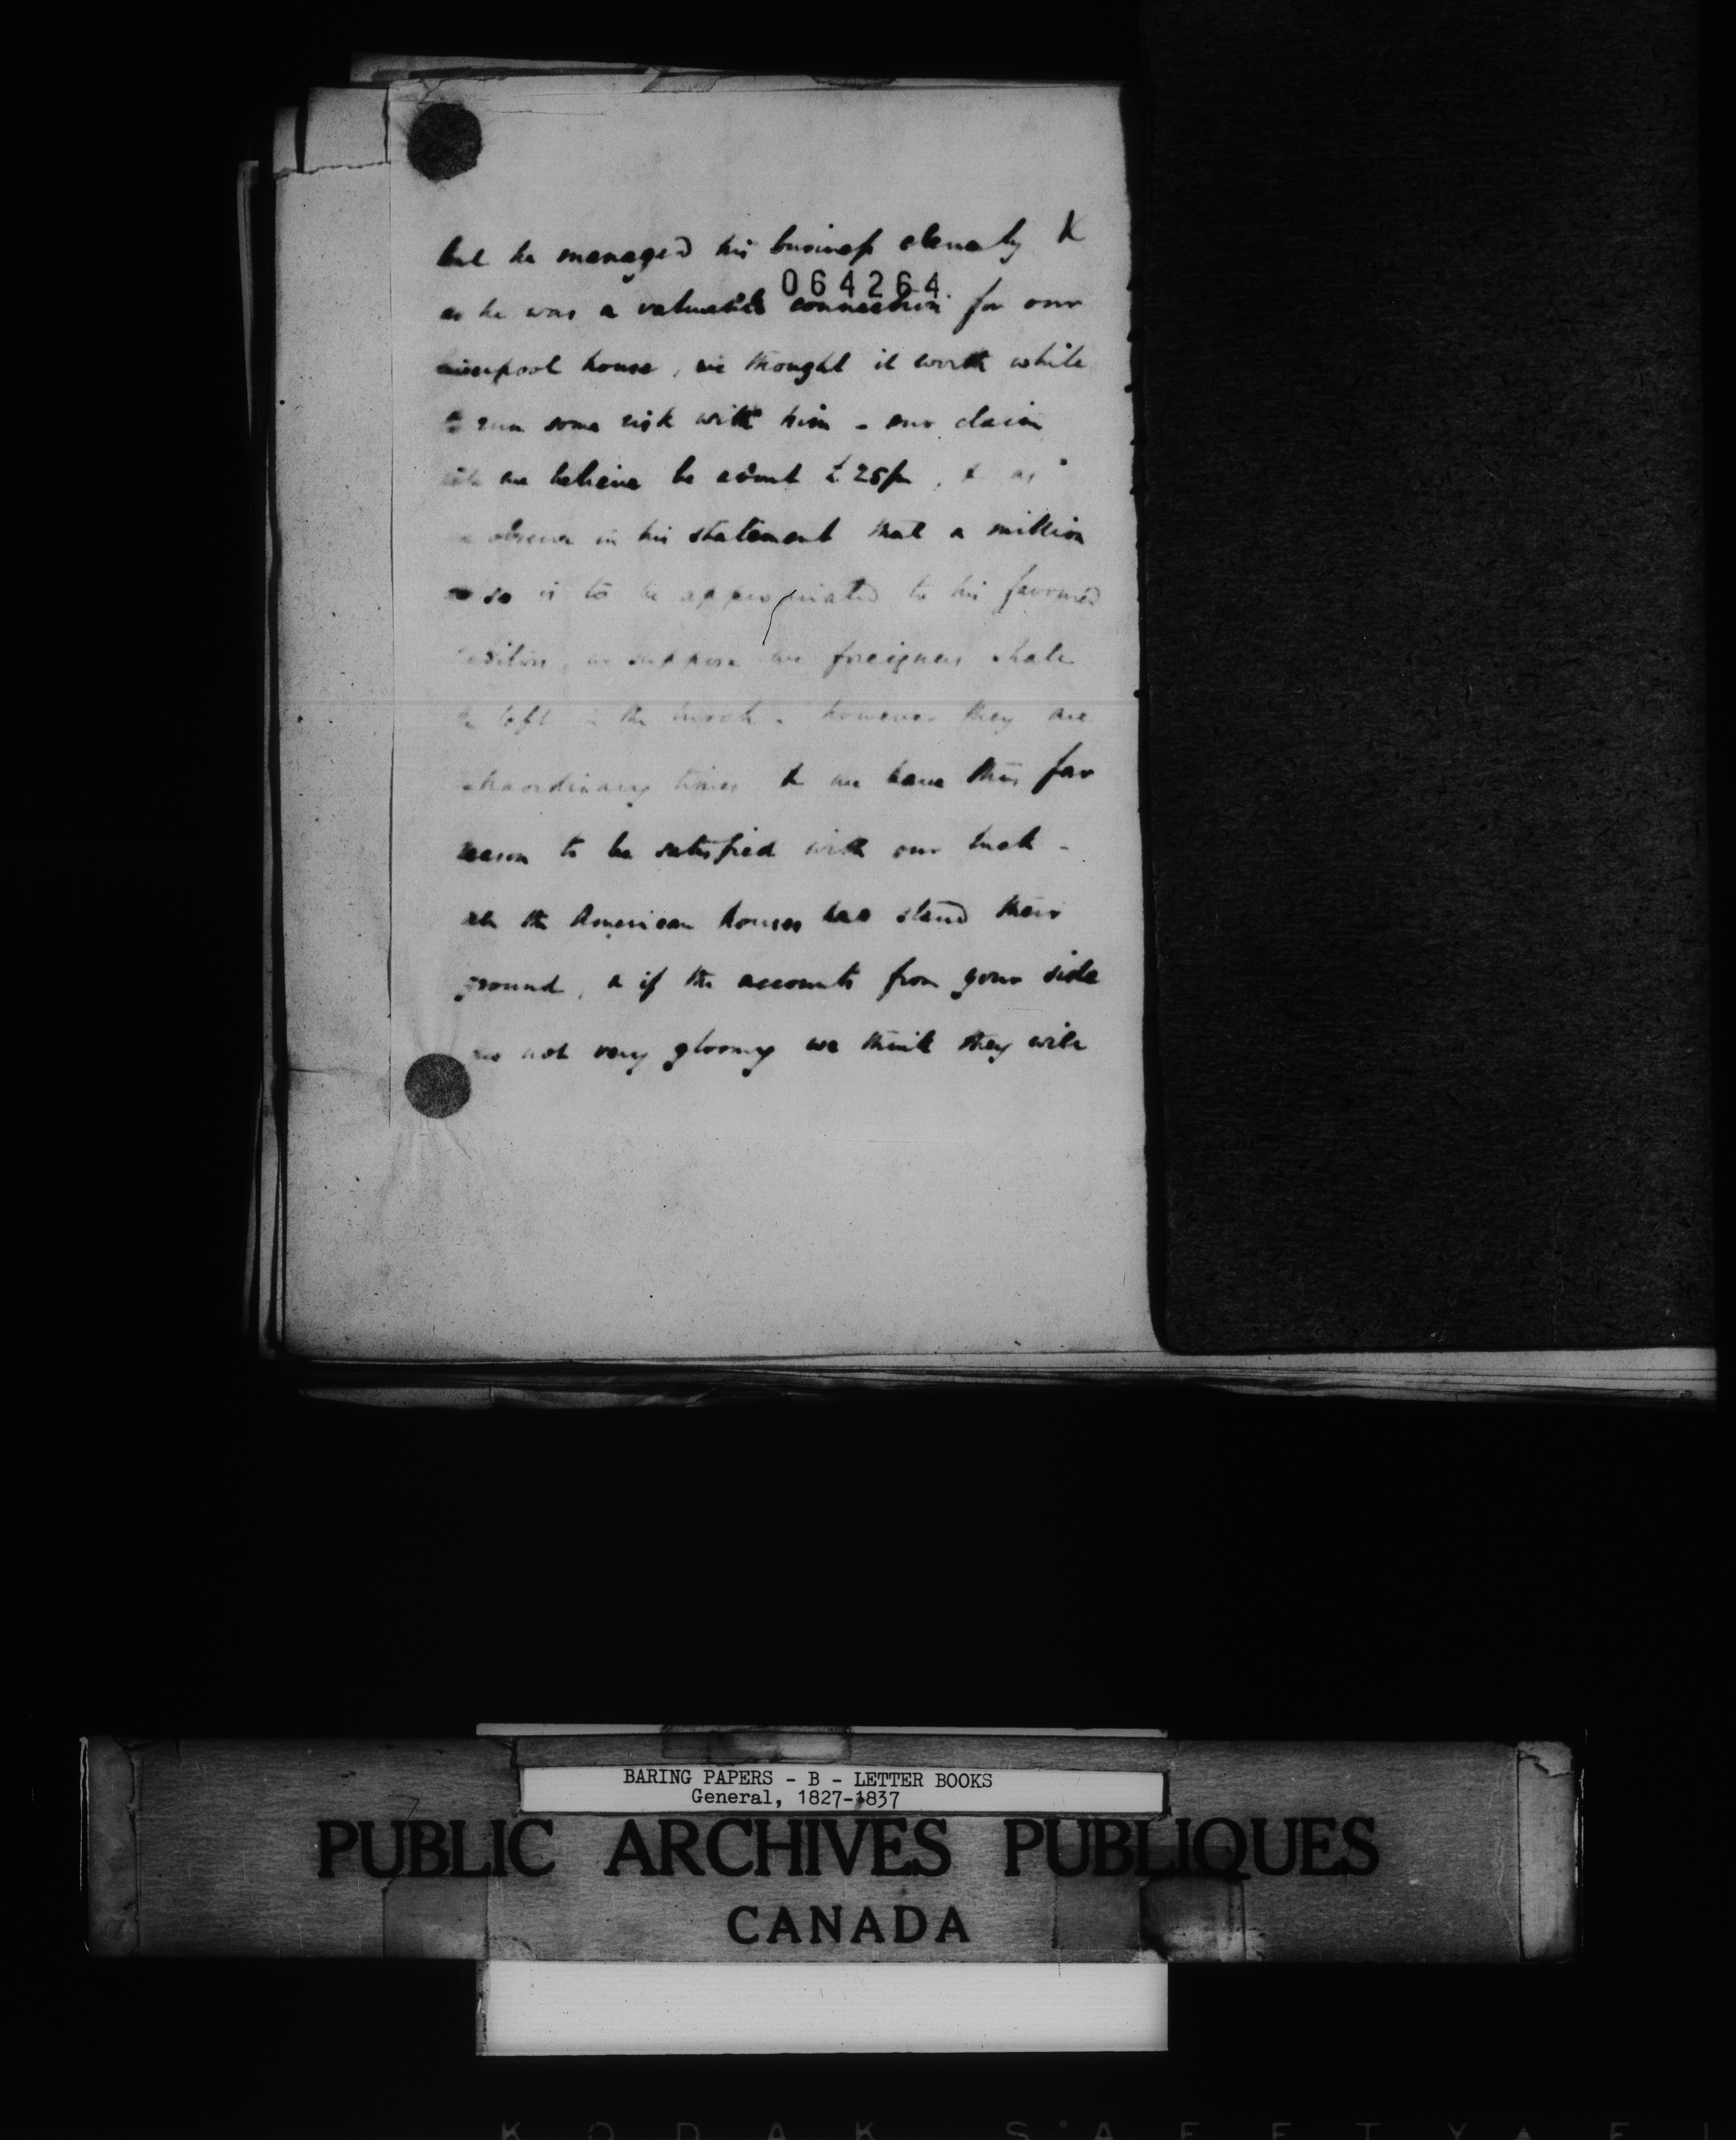 but he managed his business cleverly &
064264
as he was a valuable connection for our
Liverpool house, we thought it worth while
to run some risk with him - our claim
will we believe be about £25/m, & as
we observe in his statement that a million
or so is to be appropriated to his favoured
creditors, we suppose we foreigners shall
be left in the lurch - however they are
extraordinary times & we have thus far
reason to be satisfied with our luck -
all the American houses have stand their
ground, & if the accounts from your side
are not very gloomy we think they will
BARING PAPERS - B - LETTER BOOKS
General, 1827-1837
PUBLIC ARCHIVES PUBLIQUES
CANADA
KODAK SAFETY